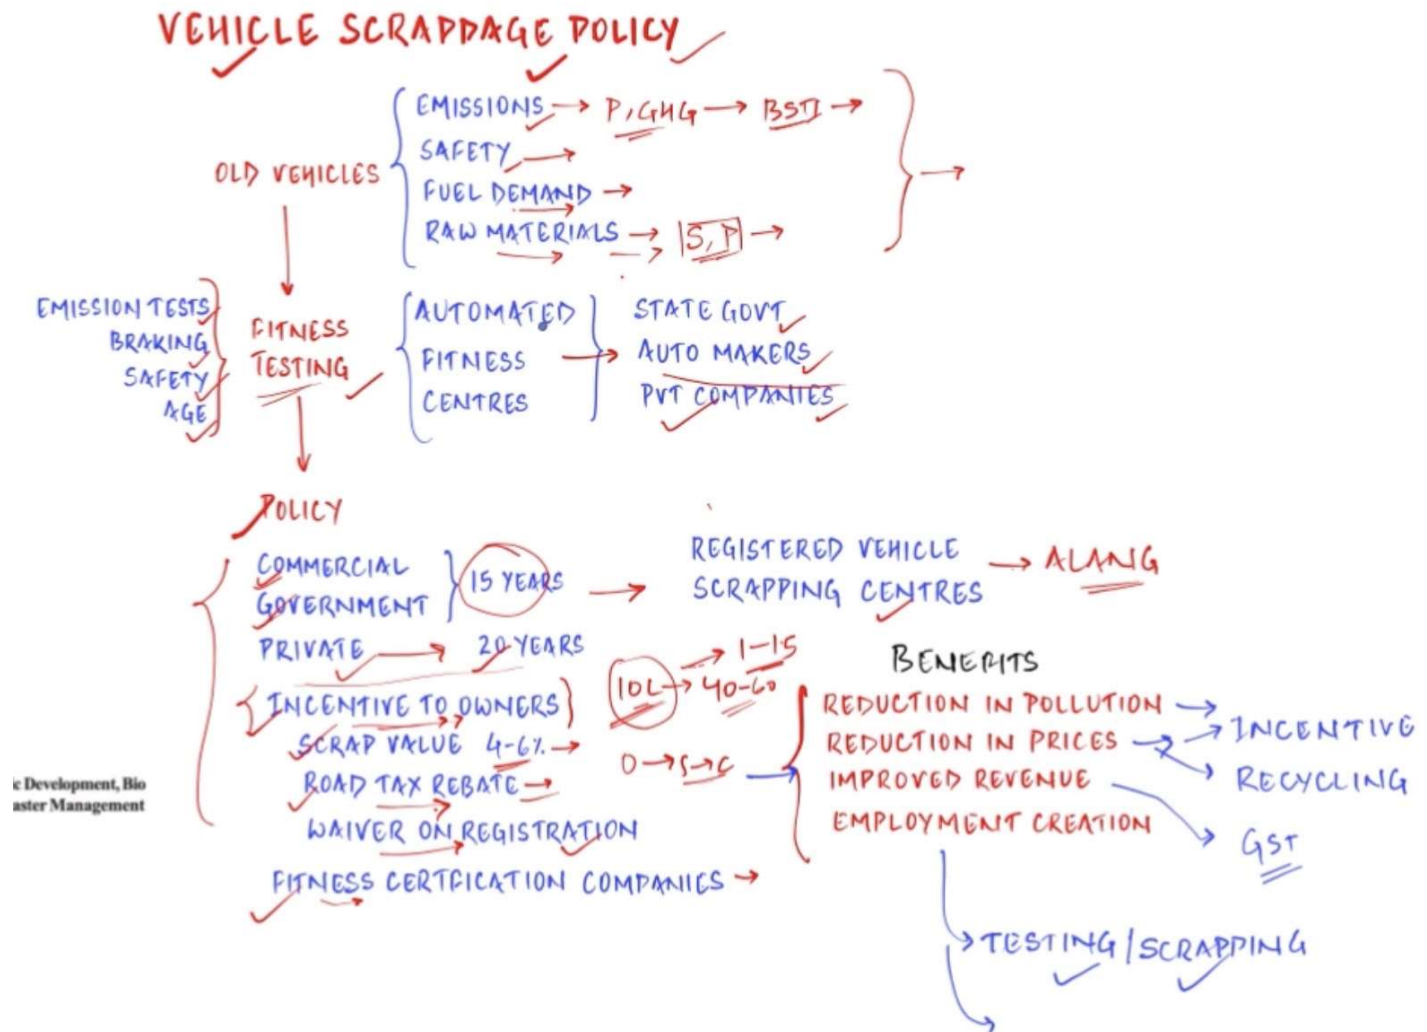 VEHICLE SCRAPPAGE POLICY
OLD VEHICLES
EMISSIONS → P, GHG → BSVI →
SAFETY →
FUEL DEMAND →
RAW MATERIALS → S, P →
EMISSION TESTS
BRAKING
SAFETY
AGE
FITNESS
TESTING
AUTOMATED
FITNESS
CENTRES
STATE GOVT
AUTO MAKERS
PVT COMPANIES
POLICY
COMMERCIAL
GOVERNMENT
15 YEARS
REGISTERED VEHICLE
SCRAPPING CENTRES
→ ALANG
PRIVATE → 20 YEARS
INCENTIVE TO OWNERS
SCRAP VALUE 4-6% →
ROAD TAX REBATE →
WAIVER ON REGISTRATION
FITNESS CERTFICATION COMPANIES →
10L → 40-60
→ 1-1.5
O → S → C
BENEFITS
REDUCTION IN POLLUTION →
REDUCTION IN PRICES → INCENTIVE
RECYCLING
IMPROVED REVENUE
GST
EMPLOYMENT CREATION
→ TESTING / SCRAPPING
c Development, Bio
aster Management